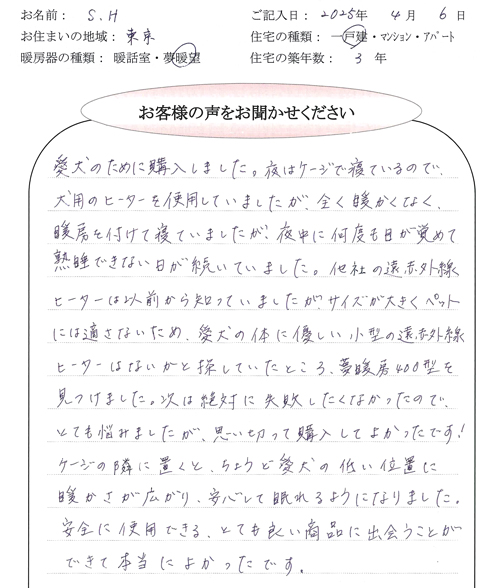 お名前： S.H ご記入日： 2025年 4月 6日
お住まいの地域： 東京 住宅の種類： 一戸建・マンション・アパート
暖房器の種類： 暖話室・夢暖望 住宅の築年数： 3 年
お客様の声をお聞かせください
愛犬のために購入しました。夜はケージで寝ているので、
犬用のヒーターを使用していましたが、全く暖かくなく、
暖房を付けて寝ていましたが、夜中に何度も目が覚めて
熟睡できない日が続いていました。他社の遠赤外線
ヒーターは以前から知っていましたが、サイズが大きくペット
には適さないため、愛犬の体に優しい小型の遠赤外線
ヒーターはないかと探していたところ、夢暖房400型を
見つけました。次は絶対に失敗したくなかったので、
とても悩みましたが、思い切って購入してよかったです！
ケージの隣に置くと、ちょうど愛犬の低い位置に
暖かさが広がり、安心して眠れるようになりました。
安全に使用できる、とても良い商品に出会うことが
できて本当によかったです。